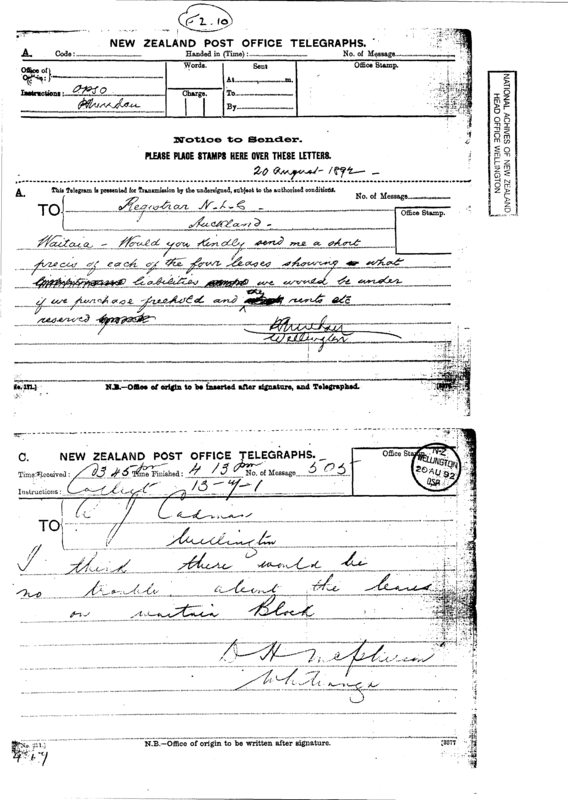 F 2.10
NEW ZEALAND POST OFFICE TELEGRAPHS.
A. Code: Handed in (Time): No. of Message
Office of
Origin:
Words.
Sent
Office Stamp.
At m.
Instructions: OPSO
Charge.
To
By
Notice to Sender.
PLEASE PLACE STAMPS HERE OVER THESE LETTERS.
20 August 1892
A. This Telegram is presented for Transmission by the undersigned, subject to the authorised conditions.
No. of Message
TO Registrar N.L.C.
Auckland.
Office Stamp.
Waitaia - Would you kindly send me a short
precis of each of the four leases showing what
liabilities we would be under
if we purchase freehold and the rents etc
reserved
Wellington
No. 171.) N.B.—Office of origin to be inserted after signature, and Telegraphed.
NATIONAL ACHIVES OF NEW ZEALAND
HEAD OFFICE WELLINGTON
C. NEW ZEALAND POST OFFICE TELEGRAPHS.
Office Stamp
N-Z
WELLINGTON
20 AU 92
Time Received: 3 45 pm Time Finished: 4 13 pm No. of Message 505
Instructions: Collect 13-4-1
TO A J Cadman
Wellington
I think there would be
no trouble about the leases
on waitaia Block
D H McPherson
Whitianga
N.B.—Office of origin to be written after signature.